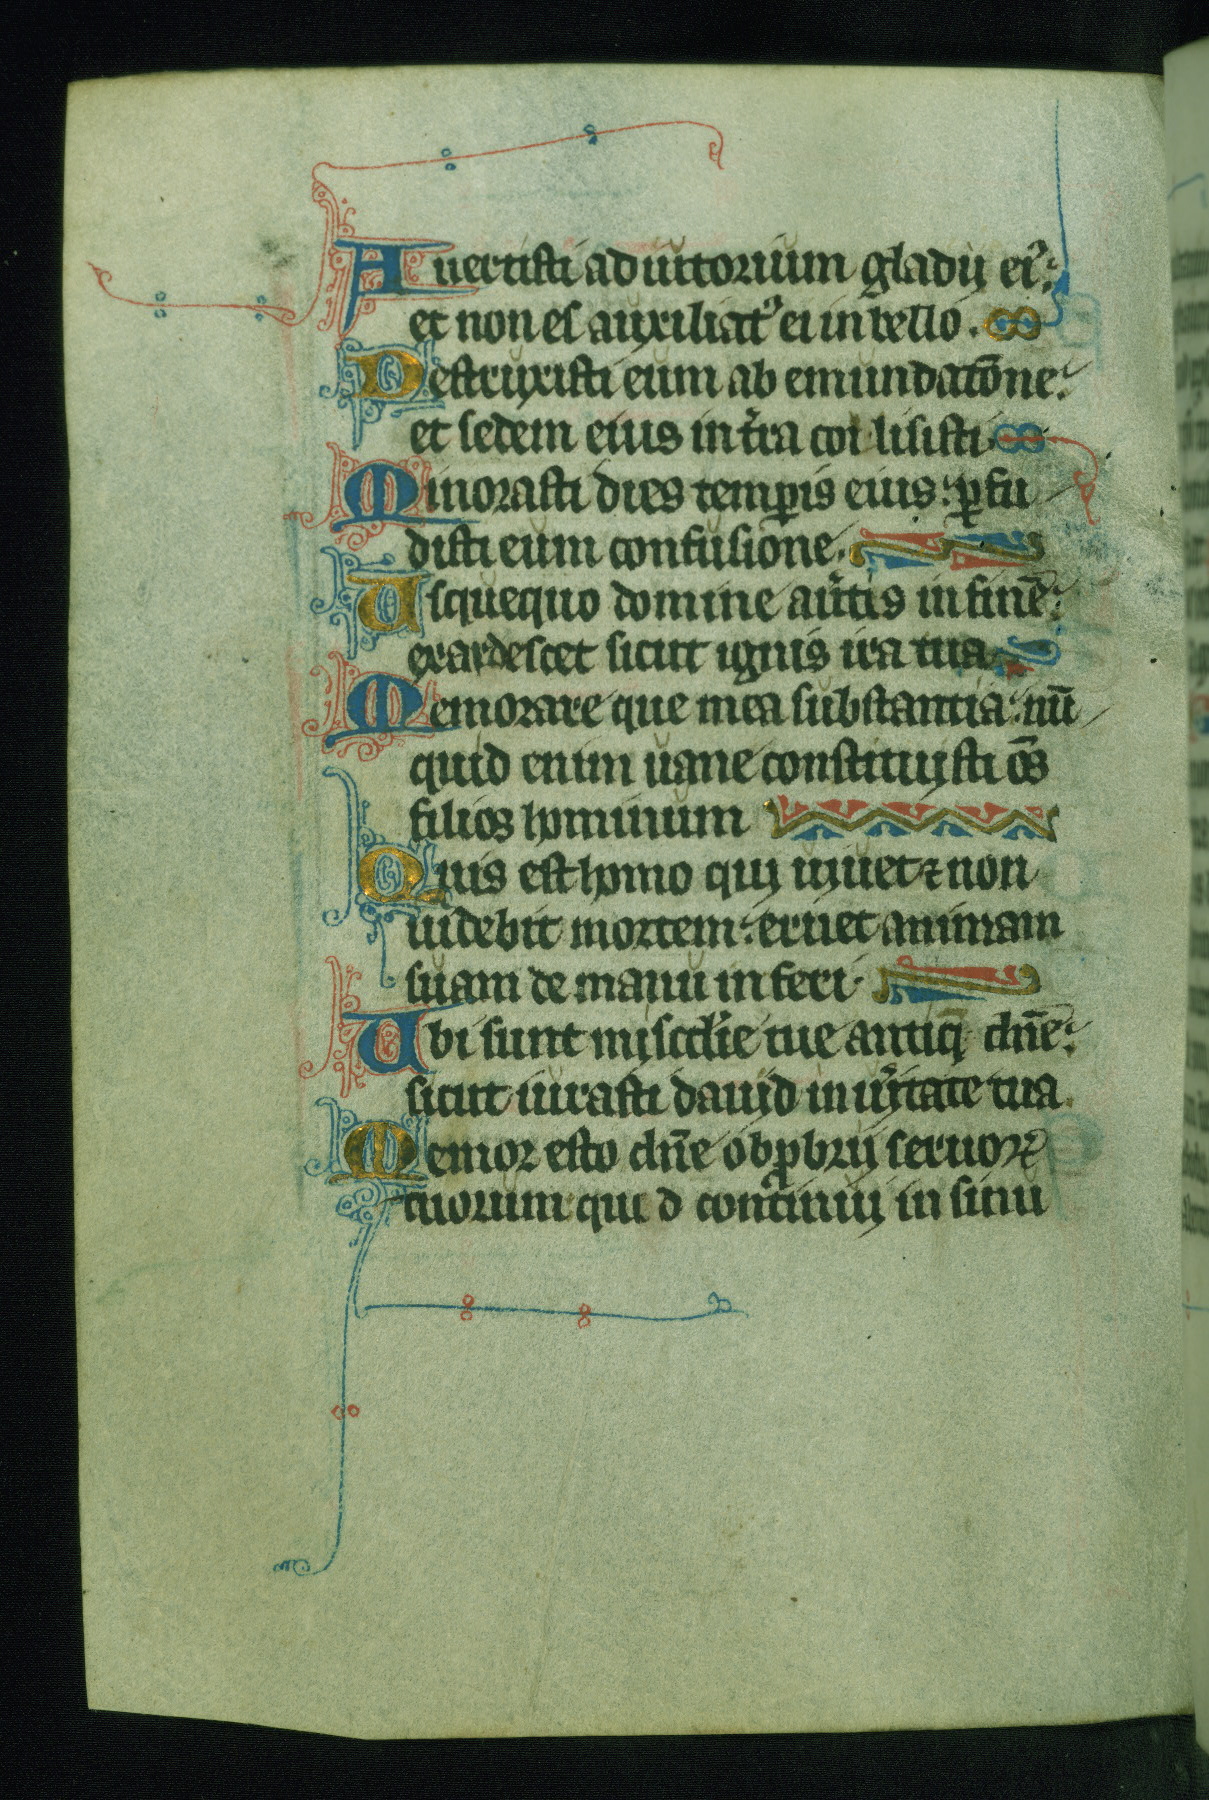 Auertisti adiutorium gladij eiꝰ:
et non es auxiliatꝰ ei in bello.
Destruxisti eum ab emundatōne:
et sedem eius in tr̄a collisisti
Minorasti dies temꝑis eius: ꝑfu
disti eum confusione.
Usquequo domine au̓tis in finē:
exardescet sicut ignis ira tua
Memorare que mea substantia: nū
quid enim uane constituisti ōs
filios hominum
Quis est homo qui uiuet ⁊ non
uidebit mortem: eruet animam
suam de manu inferi.
Ubi sunt misc̄die tue antiq̄ dn̄e:
sicut iurasti dauid in ueritate tua.
Memor esto dn̄e obꝓbrij seruoꝝ
tuorum: quod continui in sinu